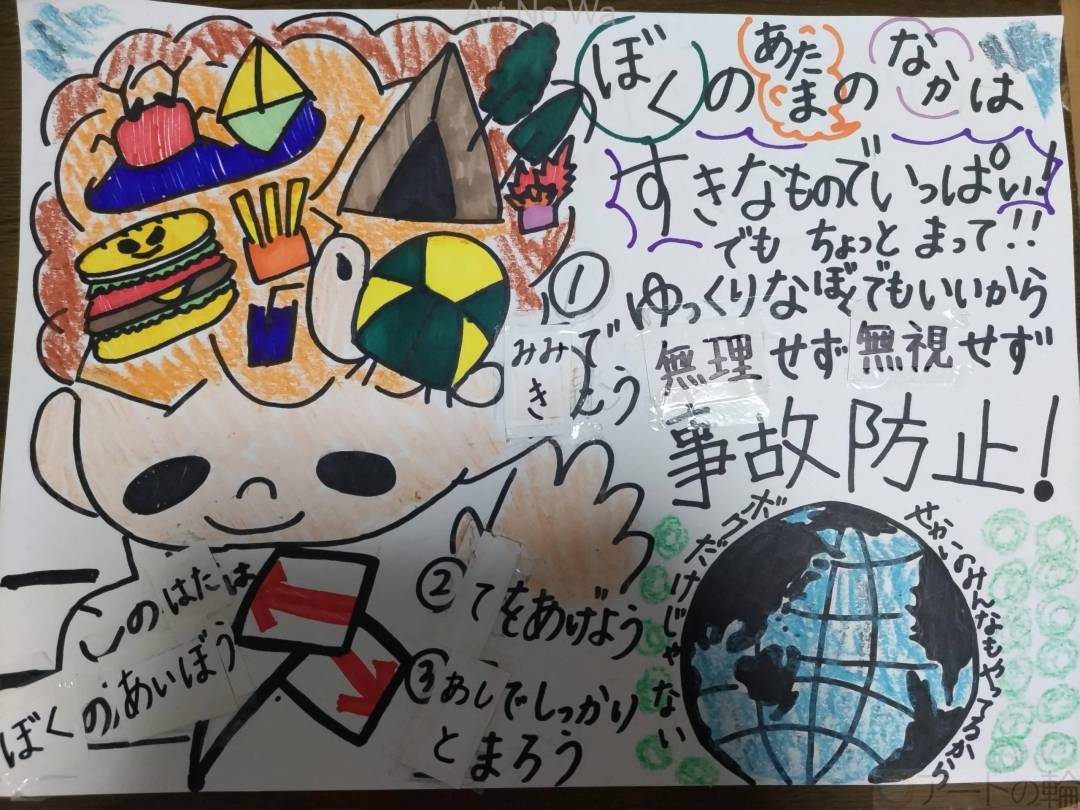 Art No Wa
ぼくのあたまのなかは
すきなものでいっぱい!
でも ちょっと まって!!
ゆっくりなぼくでもいいから
無理せず無視せず
事故防止!
① みみで
きこう
② てをあげよう
③ あしでしっかり
とまろう
このはたは
ぼくの、あいぼう
ボコボコだけじゃない
せかいのみんなもやってるから
アートの輪